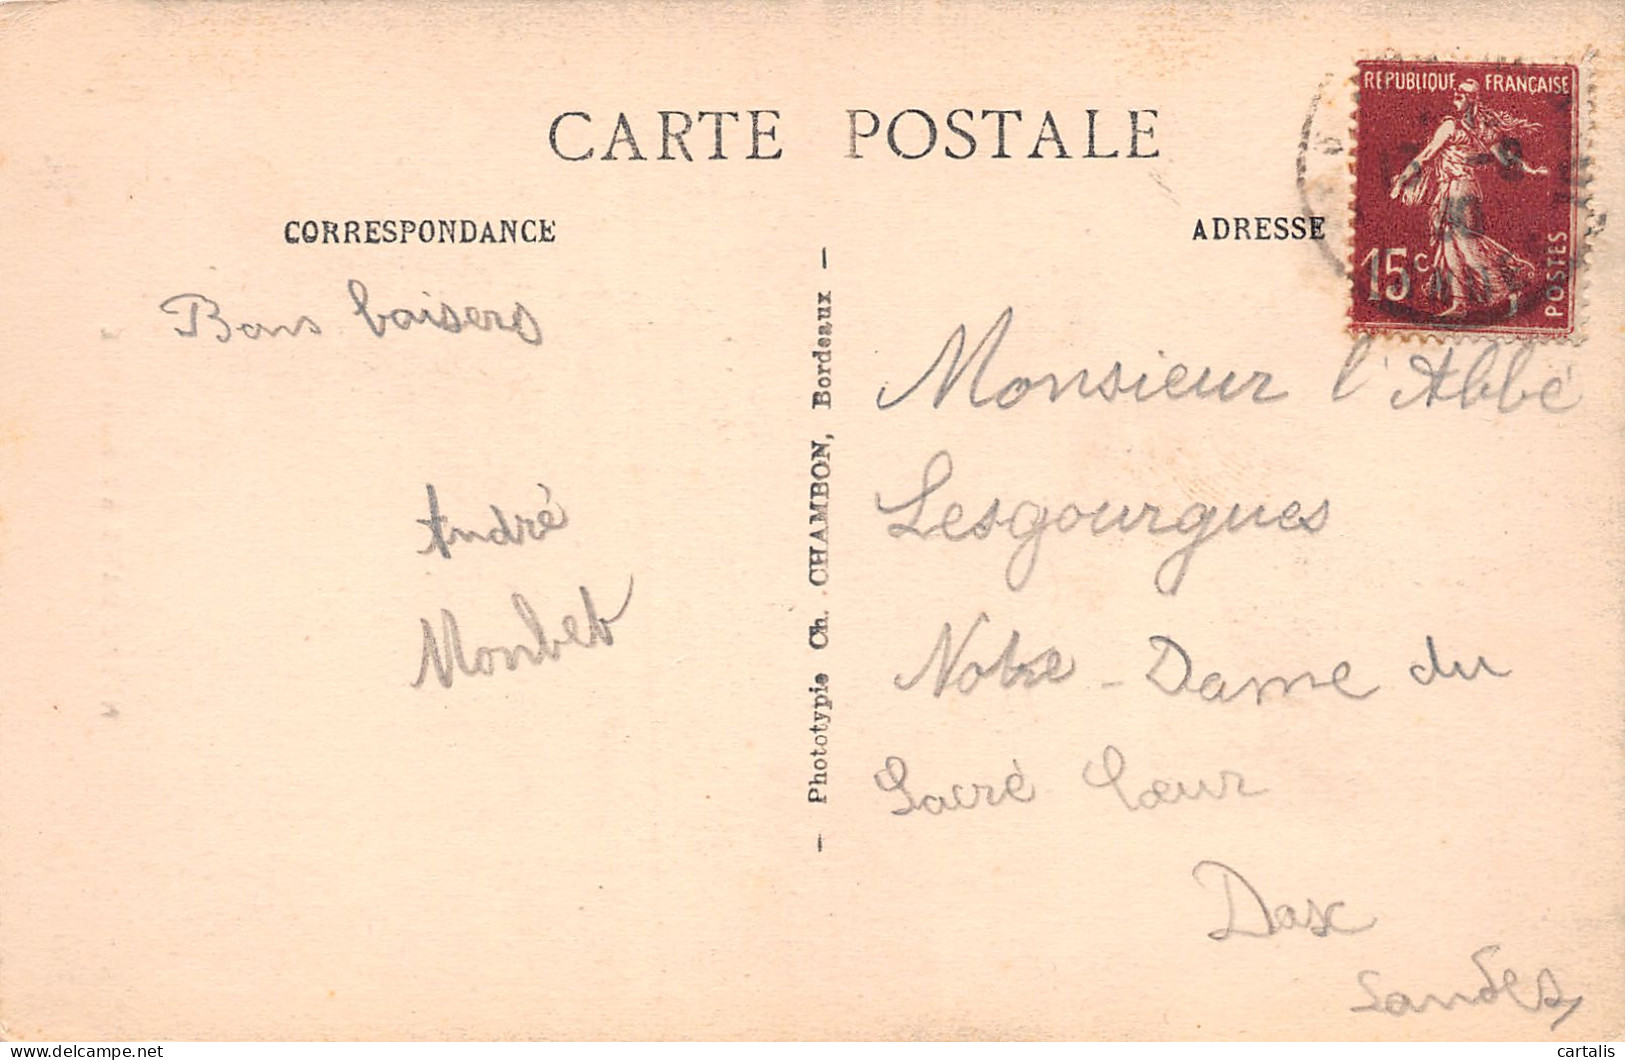 CARTE POSTALE
REPUBLIQUE FRANÇAISE
15c
POSTES
CORRESPONDANCE
ADRESSE
Bons baisers
André
Monbet
— Phototypie Ch. CHAMBON, Bordeaux —
Monsieur l'Abbé
Lesgourgues
Notre-Dame du
Sacré Cœur
Dax
Landes
delcampe.net
cartalis